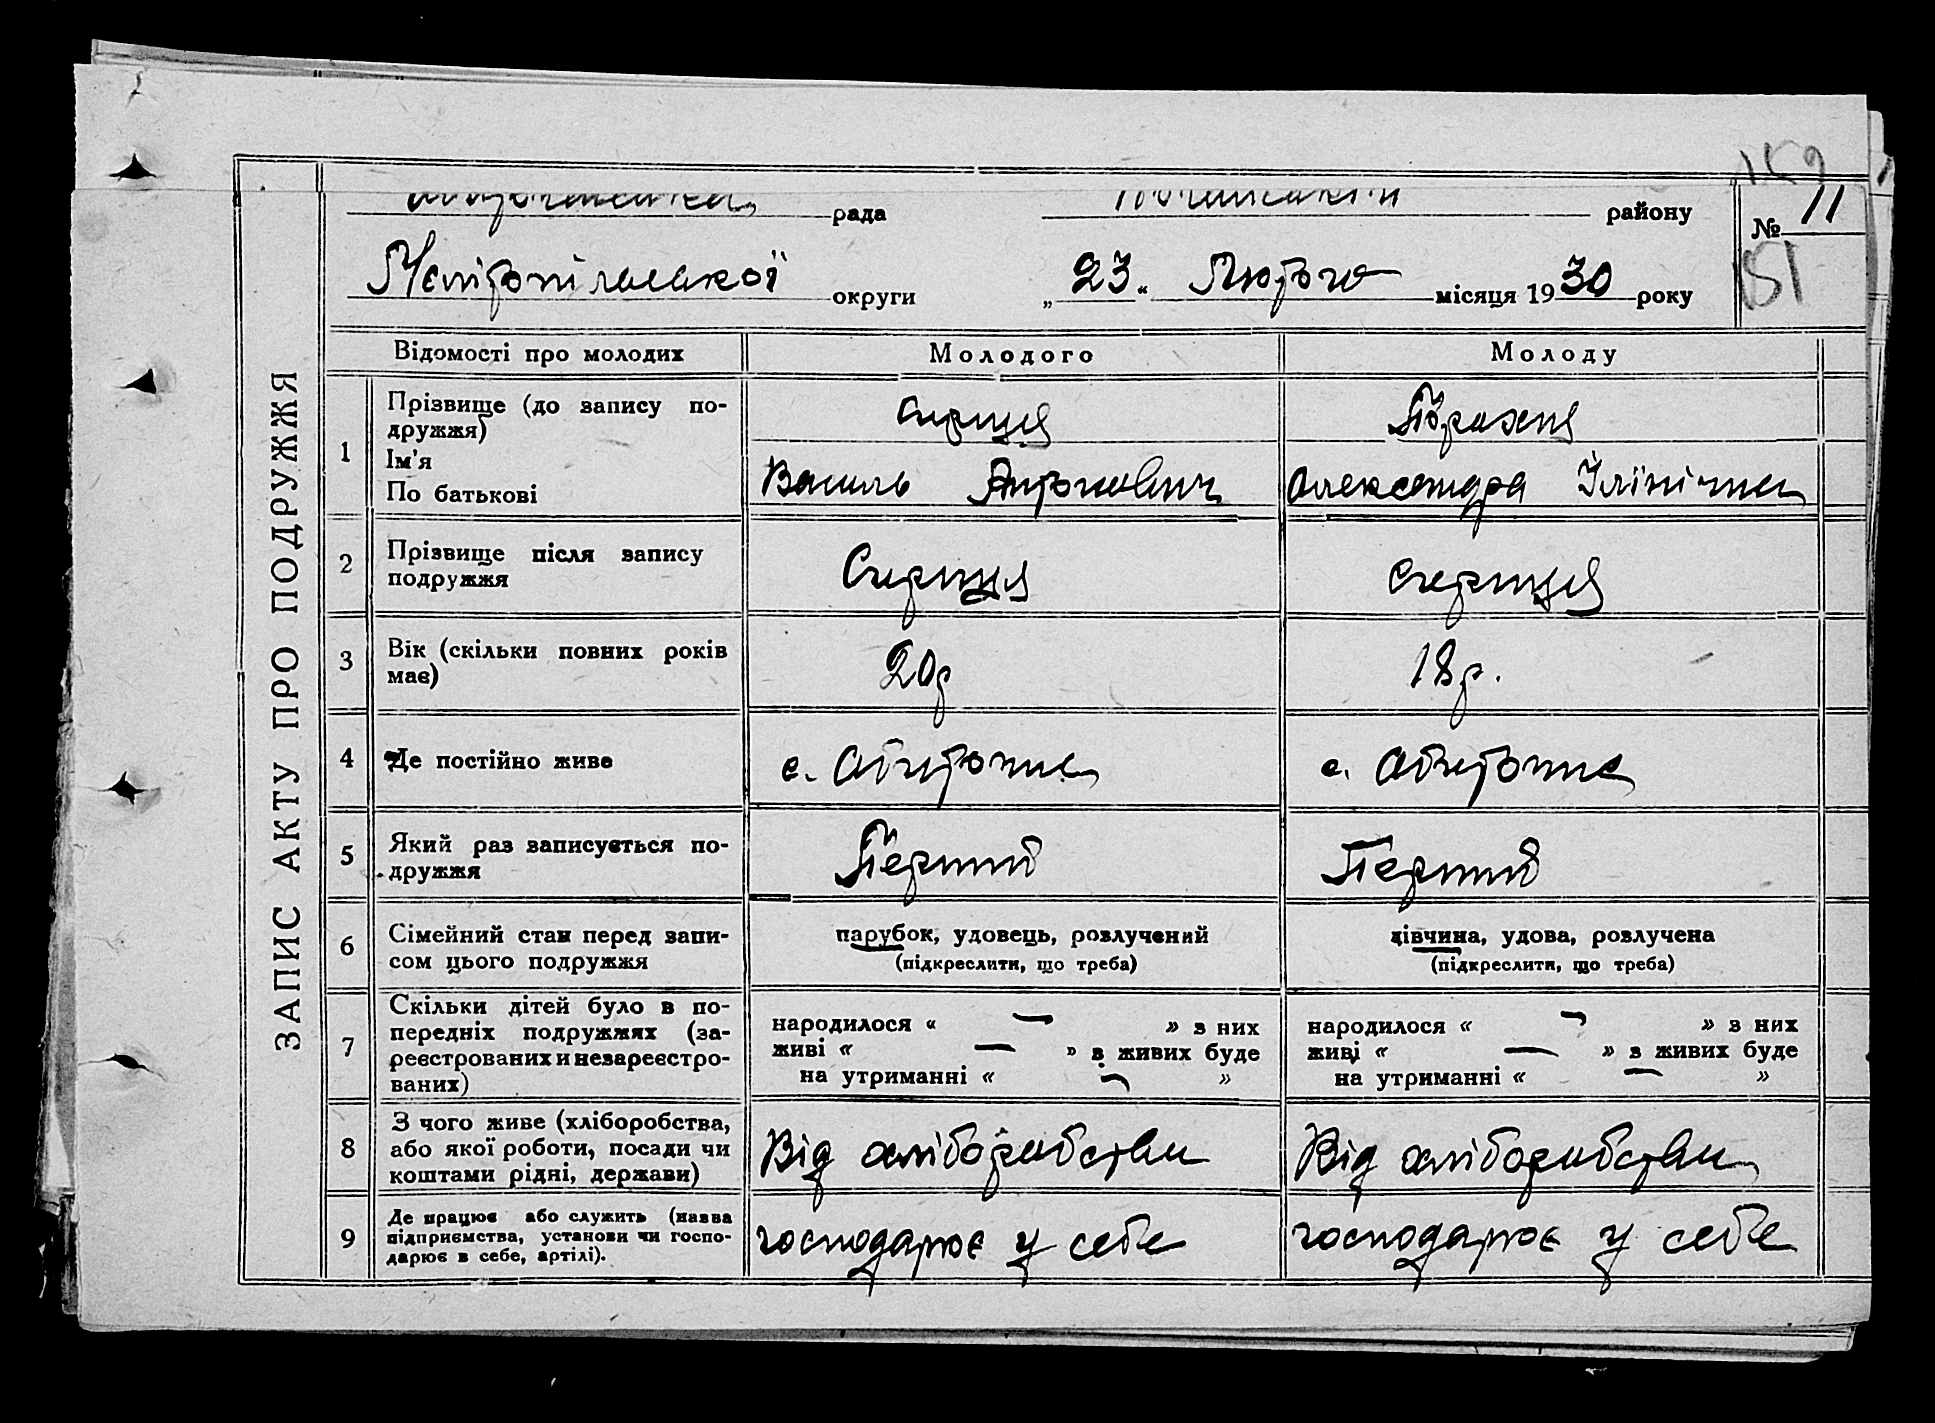 ЗАПИС АКТУ ПРО ПОДРУЖЖЯ
рада району № 11
Мелітопільської округи „ 23 “ Лютого місяця 1930 року
151
Відомості про молодих Молодого Молоду
1 Прізвище (до запису по-
дружжя)
Ім'я
По батькові
Василь Антонович Олександра Іллінічна
2 Прізвище після запису
подружжя
3 Вік (скільки повних років
має)
20р 18р.
4 Де постійно живе с. Обиточне с. Обиточне
5 Який раз записується по-
дружжя
Перший Перший
6 Сімейний стан перед запи-
сом цього подружжя
парубок, удовець, розлучений
(підкреслити, що треба)
дівчина, удова, розлучена
(підкреслити, що треба)
7 Скільки дітей було в по-
передніх подружжях (за-
реєстрованих и незареєстро-
ваних)
народилося « — » з них
живі « — » з живих буде
на утриманні « — »
народилося « — » з них
живі « — » з живих буде
на утриманні « — »
8 З чого живе (хліборобства,
або якої роботи, посади чи
коштами рідні, держави)
Від хліборобства Від хліборобства
9 Де працює або служить (назва
підприємства, установи чи госпо-
дарює в себе, артілі).
господарює у себе господарює у себе